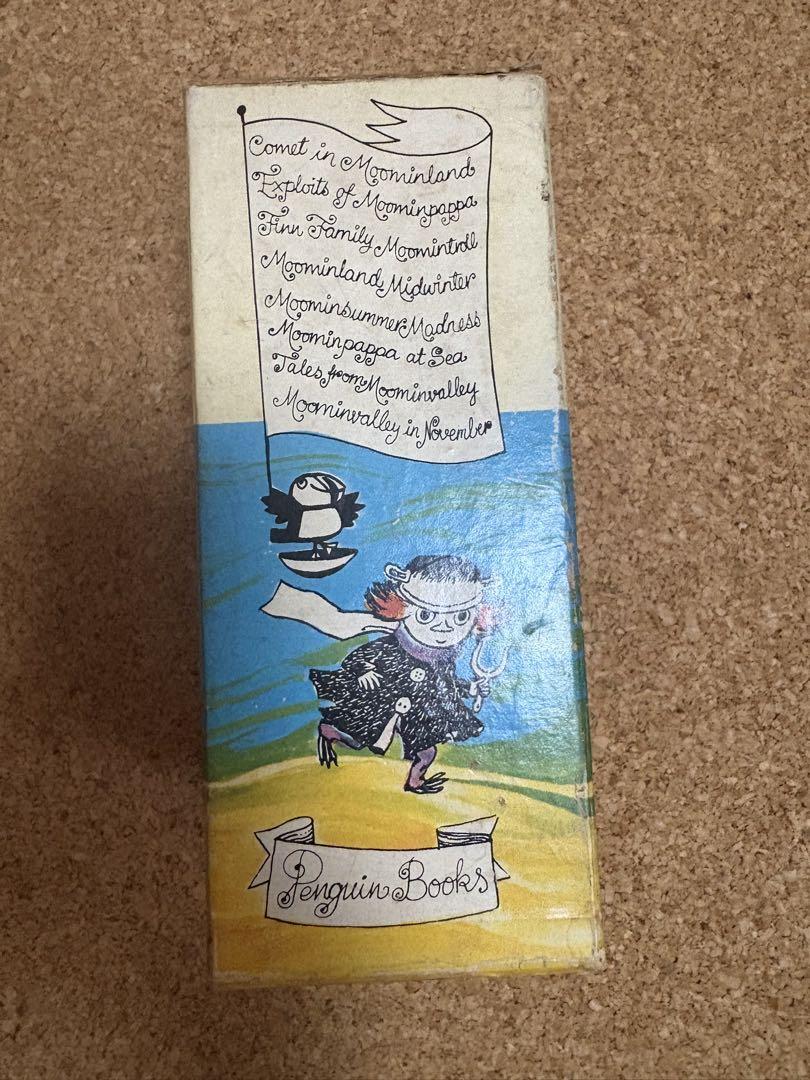 Comet in Moominland
Exploits of Moominpappa
Finn Family Moomintroll
Moominland Midwinter
Moominsummer Madness
Moominpappa at Sea
Tales from Moominvalley
Moominvalley in November
Penguin Books